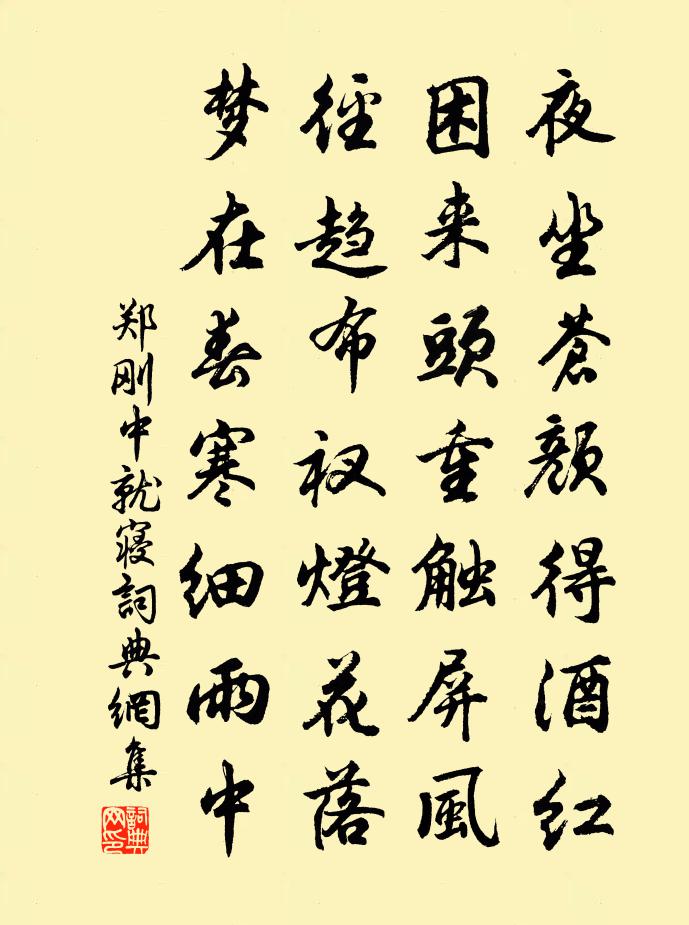 夜坐苍颜得酒红
困来頭重触屏風
徑趋布衩燈花落
梦在春寒细雨中
郑刚中就寝詞典網集
詞典网印